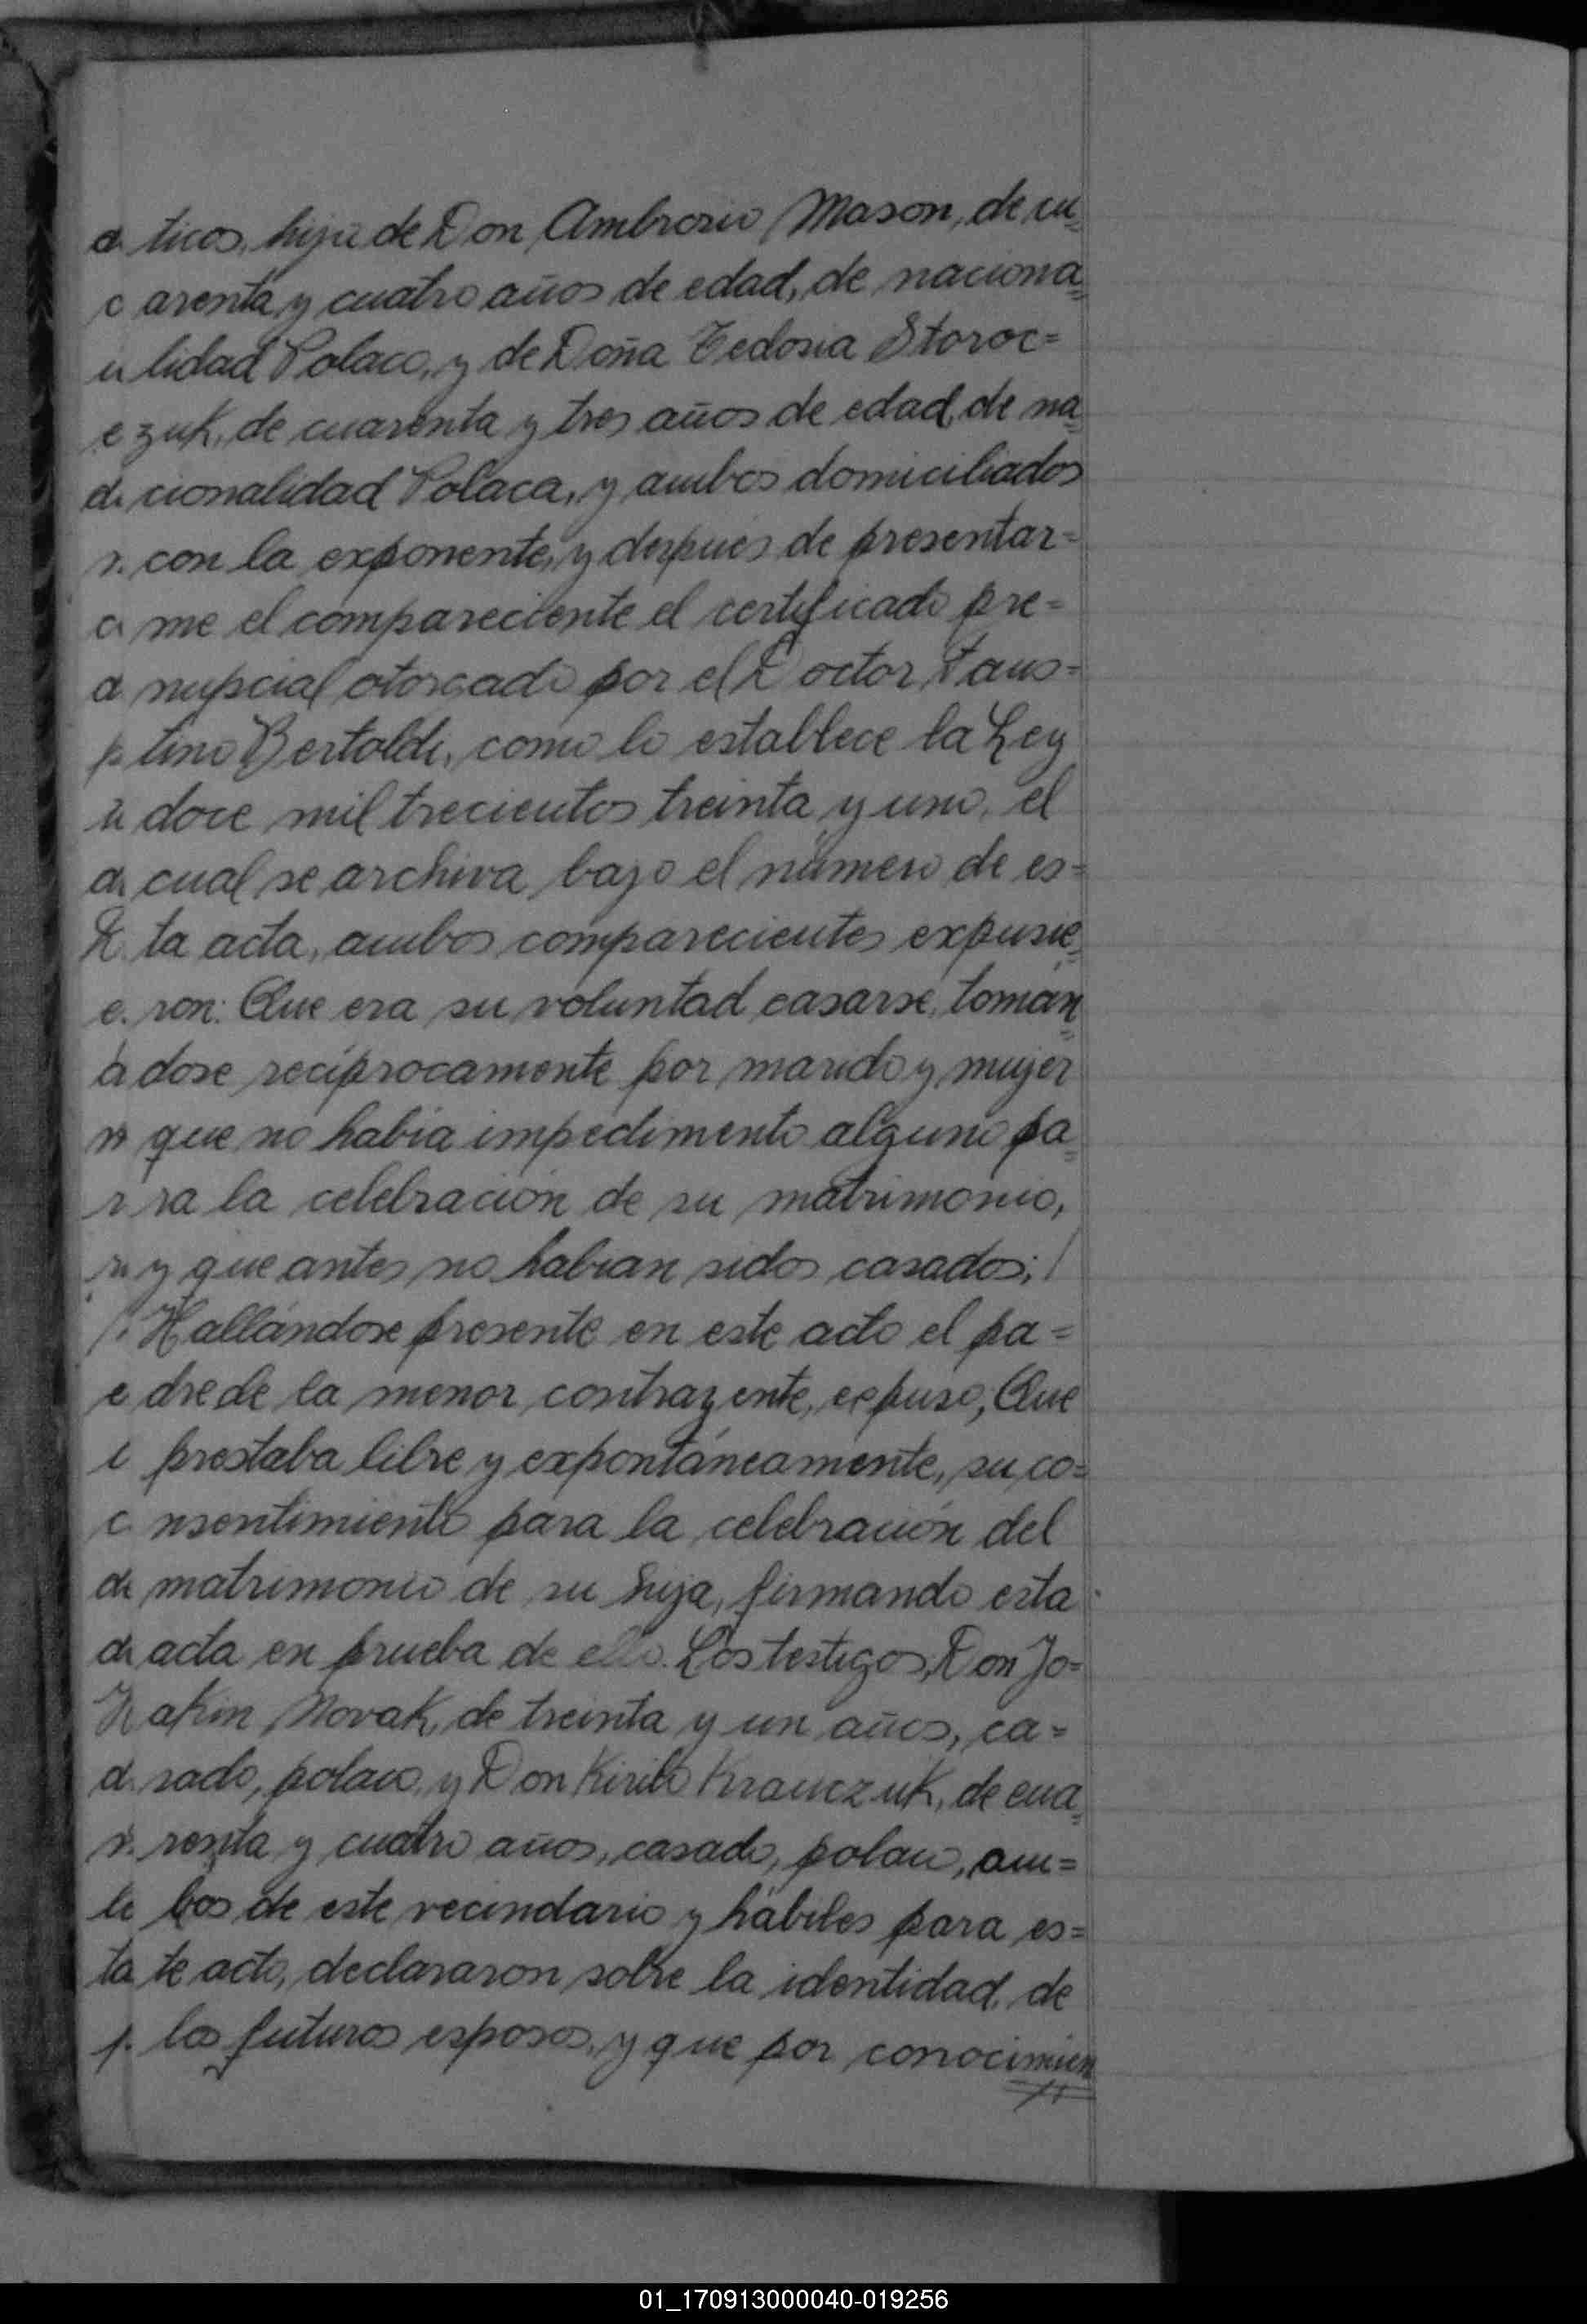 ticos, hija de Don Ambrosio Mason, de cu=
arenta y cuatro años de edad, de naciona=
lidad Polaco, y de Doña Tedosia Storoc=
zuk, de cuarenta y tres años de edad, de na=
cionalidad Polaca, y ambos domiciliados
con la exponente, y después de presentar=
me el compareciente el certificado pre=
nupcial otorgado por el Doctor Faus=
tino Bertoldi, como lo establece la Ley
doce mil trecientos treinta y uno, el
cual se archiva bajo el número de es=
ta acta, ambos comparecientes expusie=
ron: Que era su voluntad casarse, tomán=
dose recíprocamente por marido y mujer
que no había impedimento alguno pa=
ra la celebración de su matrimonio,
y que antes no habian sidos casados; /
/. Hallándose presente en este acto el pa=
dre de la menor contrayente, expuso; Que
prestaba libre y expontáneamente, su co=
nsentimiento para la celebración del
matrimonio de su hija, firmando esta
acta en prueba de ello. Los testigos, Don Jo=
akim Novak, de treinta y un años, ca=
sado, polaco, y Don Kirilo Krauczuk, de cua=
renta y cuatro años, casado, polaco, am=
bos de este vecindario y hábiles para es=
te acto, declararon sobre la identidad de
los futuros esposos, y que por conocimien
01_170913000040-019256